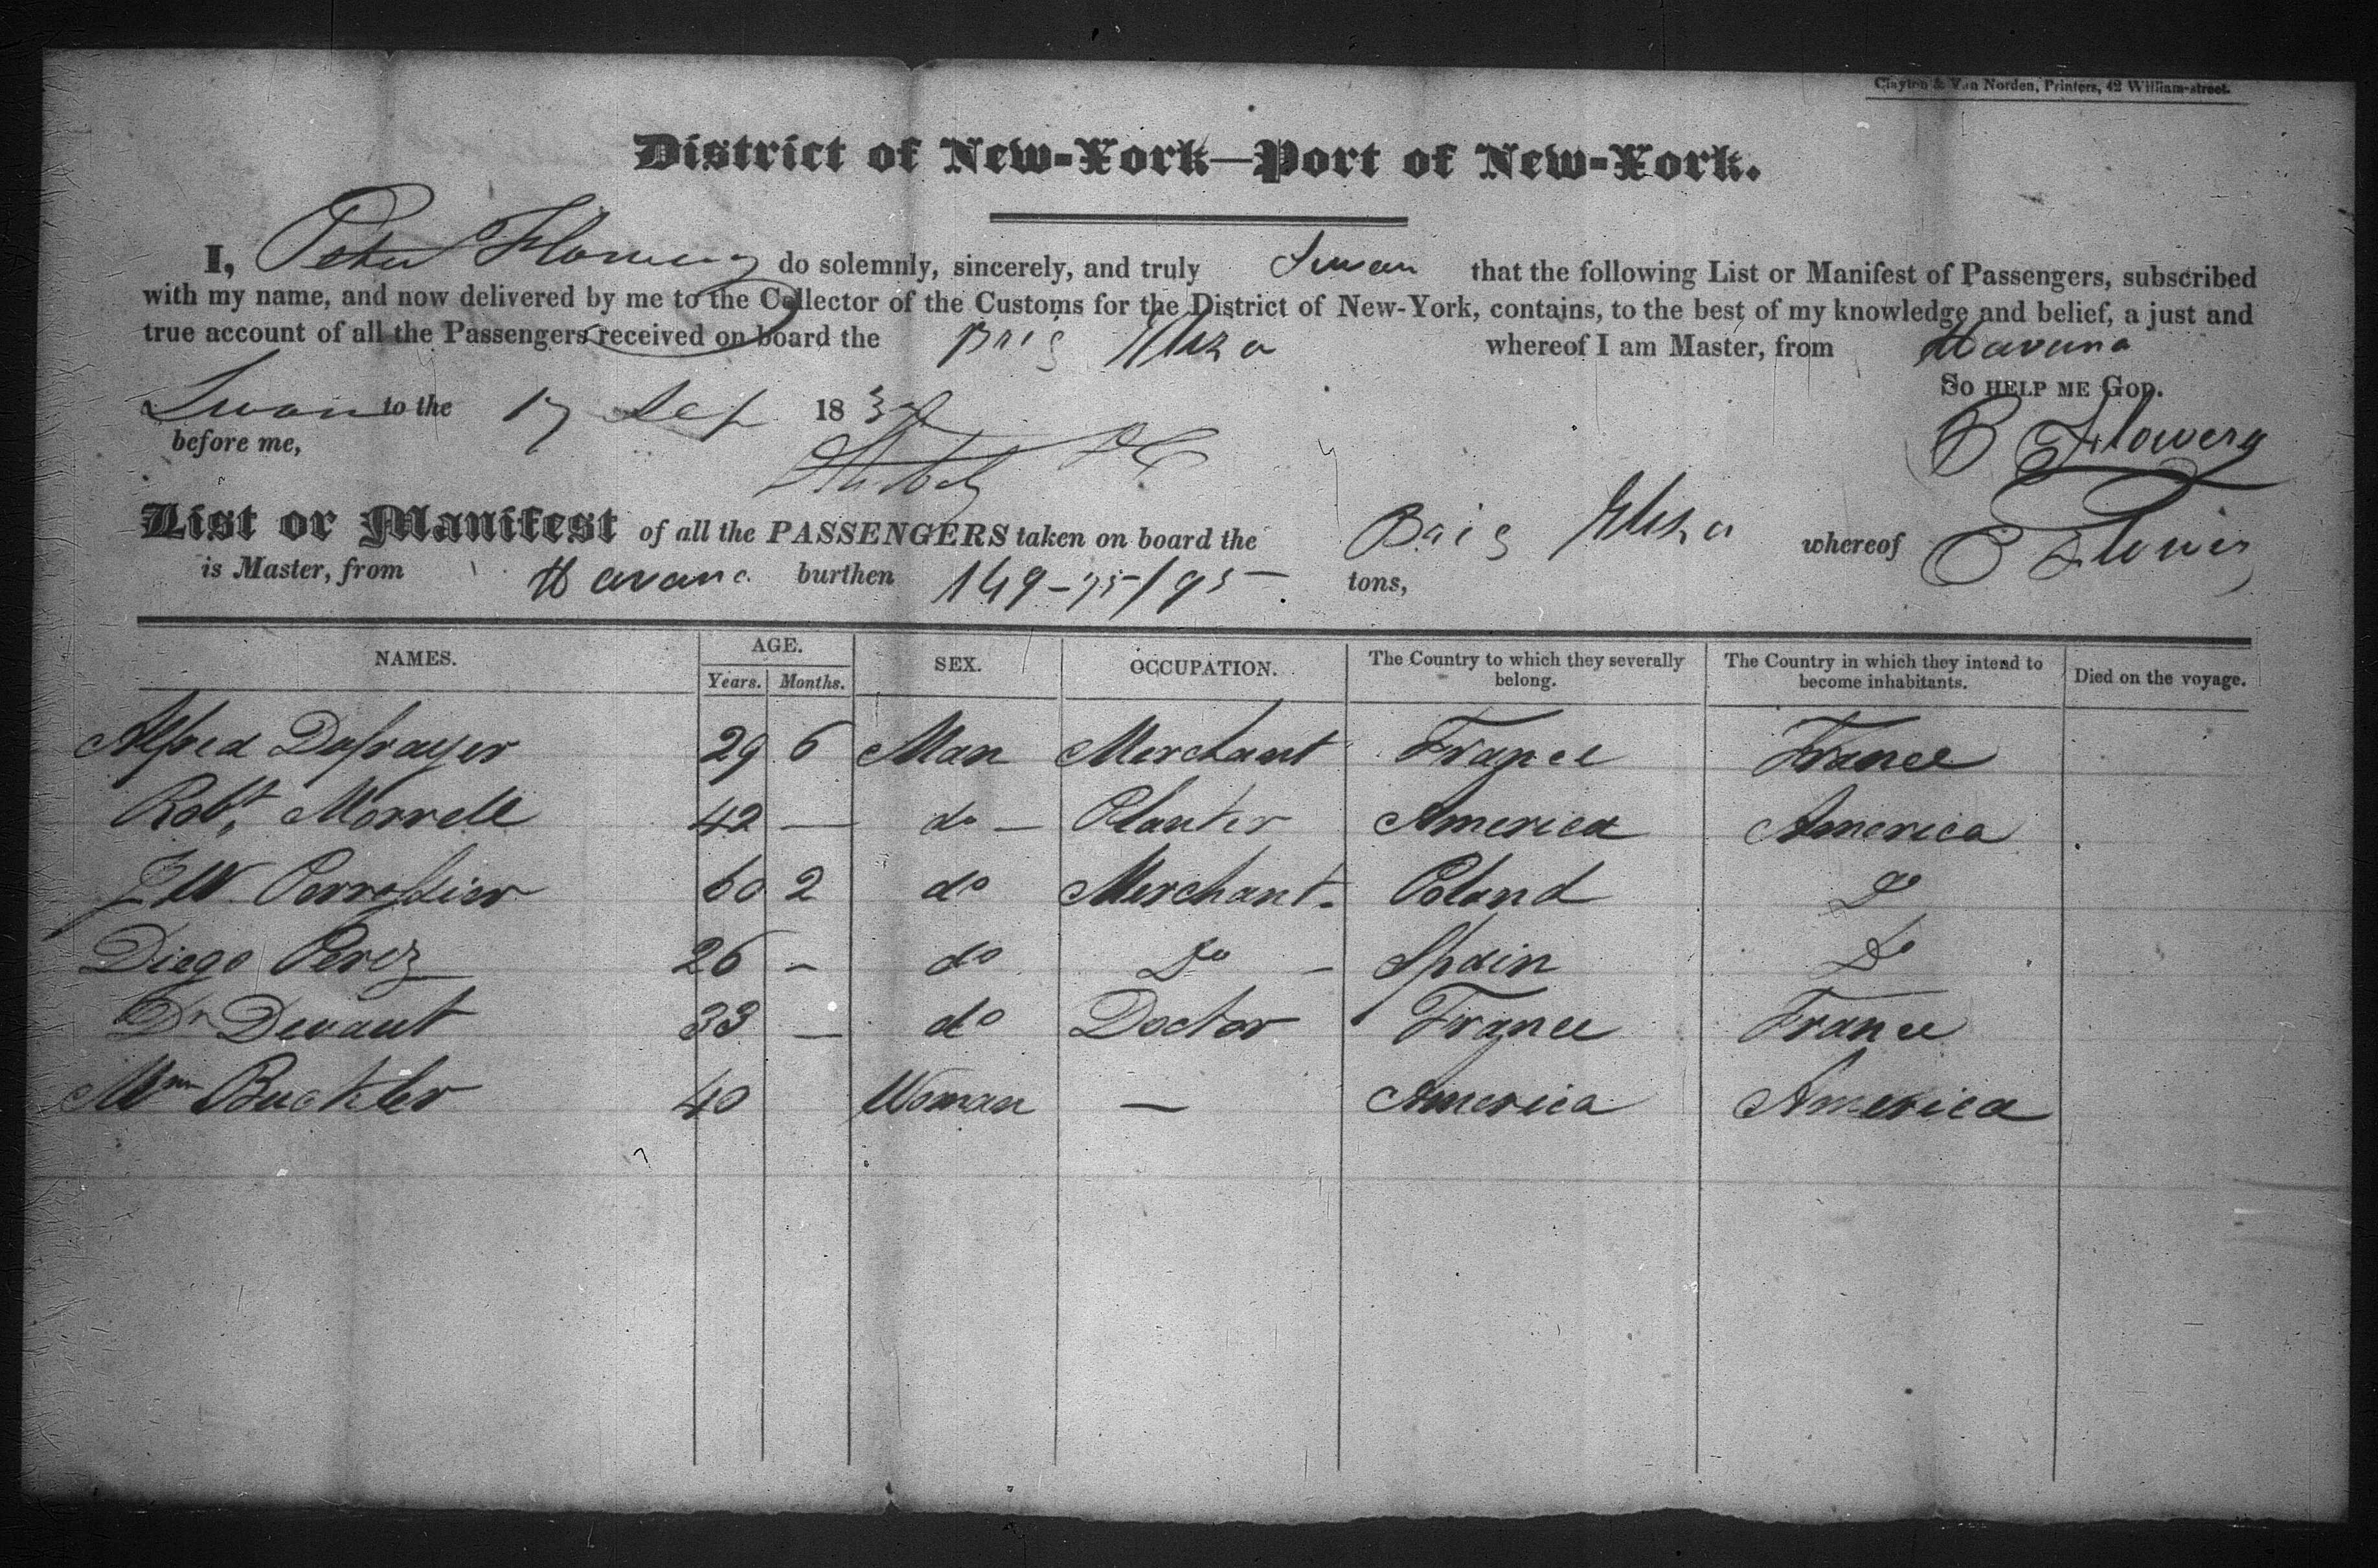 Clayton & Van Norden, Printers, 42 William-street.
District of New-York—Port of New-York.
I, Peter Flowery do solemnly, sincerely, and truly Swear that the following List or Manifest of Passengers, subscribed
with my name, and now delivered by me to the Collector of the Customs for the District of New-York, contains, to the best of my knowledge and belief, a just and
true account of all the Passengers received on board the Brig Eliza whereof I am Master, from Havana
So HELP ME GOD.
Sworn to the 17 Sep 183
before me,
P Flowery
List or Manifest of all the PASSENGERS taken on board the Brig Eliza whereof P Flowery
is Master, from Havana burthen 149-75/95 tons,
NAMES. AGE. SEX. OCCUPATION. The Country to which they severally belong. The Country in which they intend to become inhabitants. Died on the voyage.
Years. Months.
Alfred 29 6 Man Merchant France France
Robt. Morrell 42 — do — Planter America America
J W 60 2 do Merchant. Poland Do
Diego Perez 26 – do Do – Spain Do
Dr Devaut 33 — do Doctor France France
Buckler 40 Woman — America America